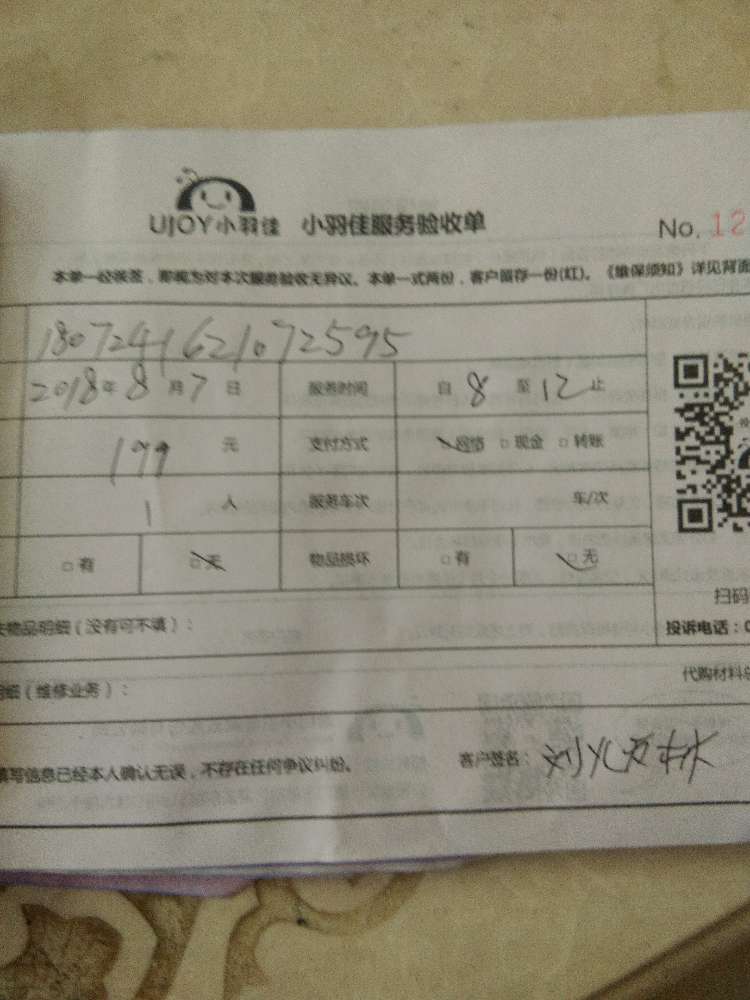 UJOY小羽佳 小羽佳服务验收单 No. 12
本单一经签签，即视为对本次服务验收无异议。本单一式两份，客户留存一份(红)。《维保须知》详见背面
1807241621072595
2018年8月7日 服务时间 自8至12止
199元 支付方式 网络 □现金 □转账
1人 服务车次 车/次
□有 □无 物品损坏 □有 □无
扫码
物品明细（没有可不填）： 投诉电话：0
明细（维修业务）： 代购材料总
填写信息已经本人确认无误，不存在任何争议纠纷。 客户签名：刘